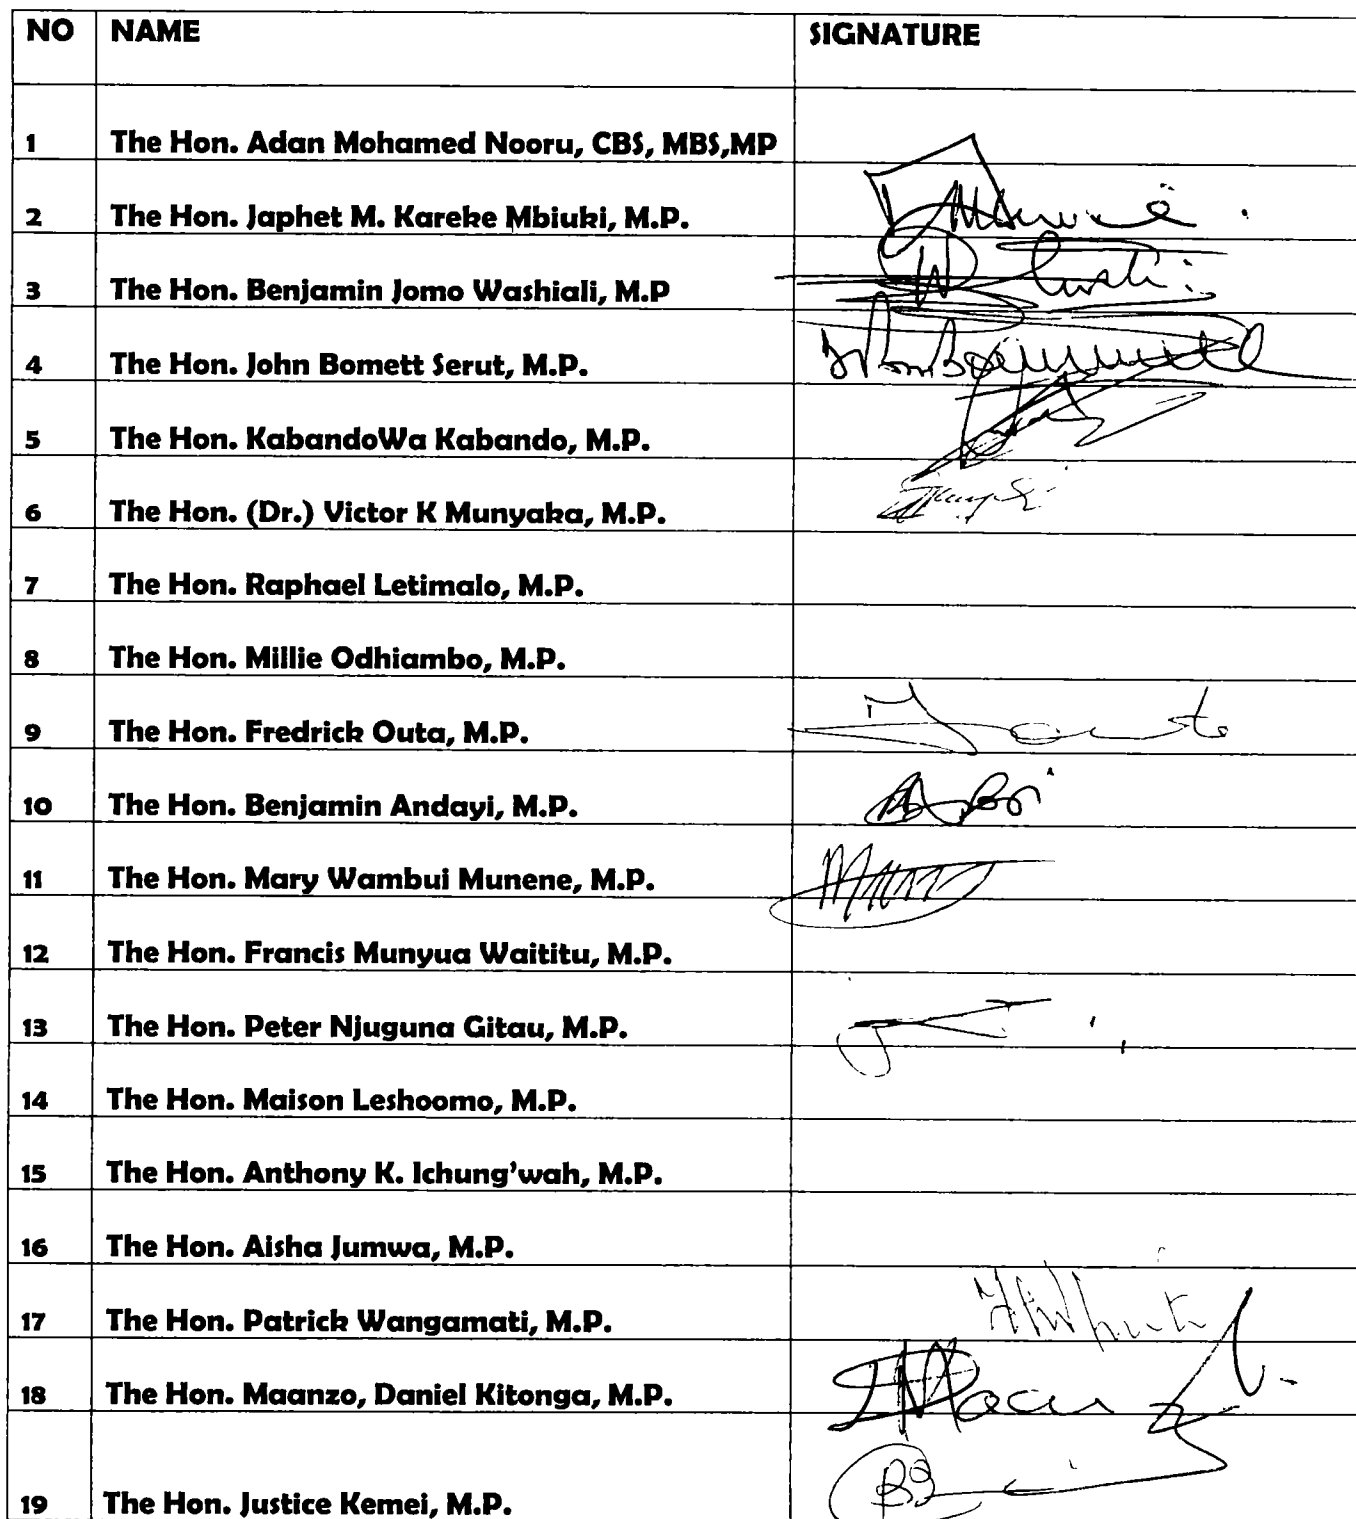 NO NAME SIGNATURE
1 The Hon. Adan Mohamed Nooru, CBS, MBS,MP
2 The Hon. Japhet M. Kareke Mbiuki, M.P.
3 The Hon. Benjamin Jomo Washiali, M.P
4 The Hon. John Bomett Serut, M.P.
5 The Hon. KabandoWa Kabando, M.P.
6 The Hon. (Dr.) Victor K Munyaka, M.P.
7 The Hon. Raphael Letimalo, M.P.
8 The Hon. Millie Odhiambo, M.P.
9 The Hon. Fredrick Outa, M.P.
10 The Hon. Benjamin Andayi, M.P.
11 The Hon. Mary Wambui Munene, M.P.
12 The Hon. Francis Munyua Waititu, M.P.
13 The Hon. Peter Njuguna Gitau, M.P.
14 The Hon. Maison Leshoomo, M.P.
15 The Hon. Anthony K. Ichung'wah, M.P.
16 The Hon. Aisha Jumwa, M.P.
17 The Hon. Patrick Wangamati, M.P.
18 The Hon. Maanzo, Daniel Kitonga, M.P.
19 The Hon. Justice Kemei, M.P.